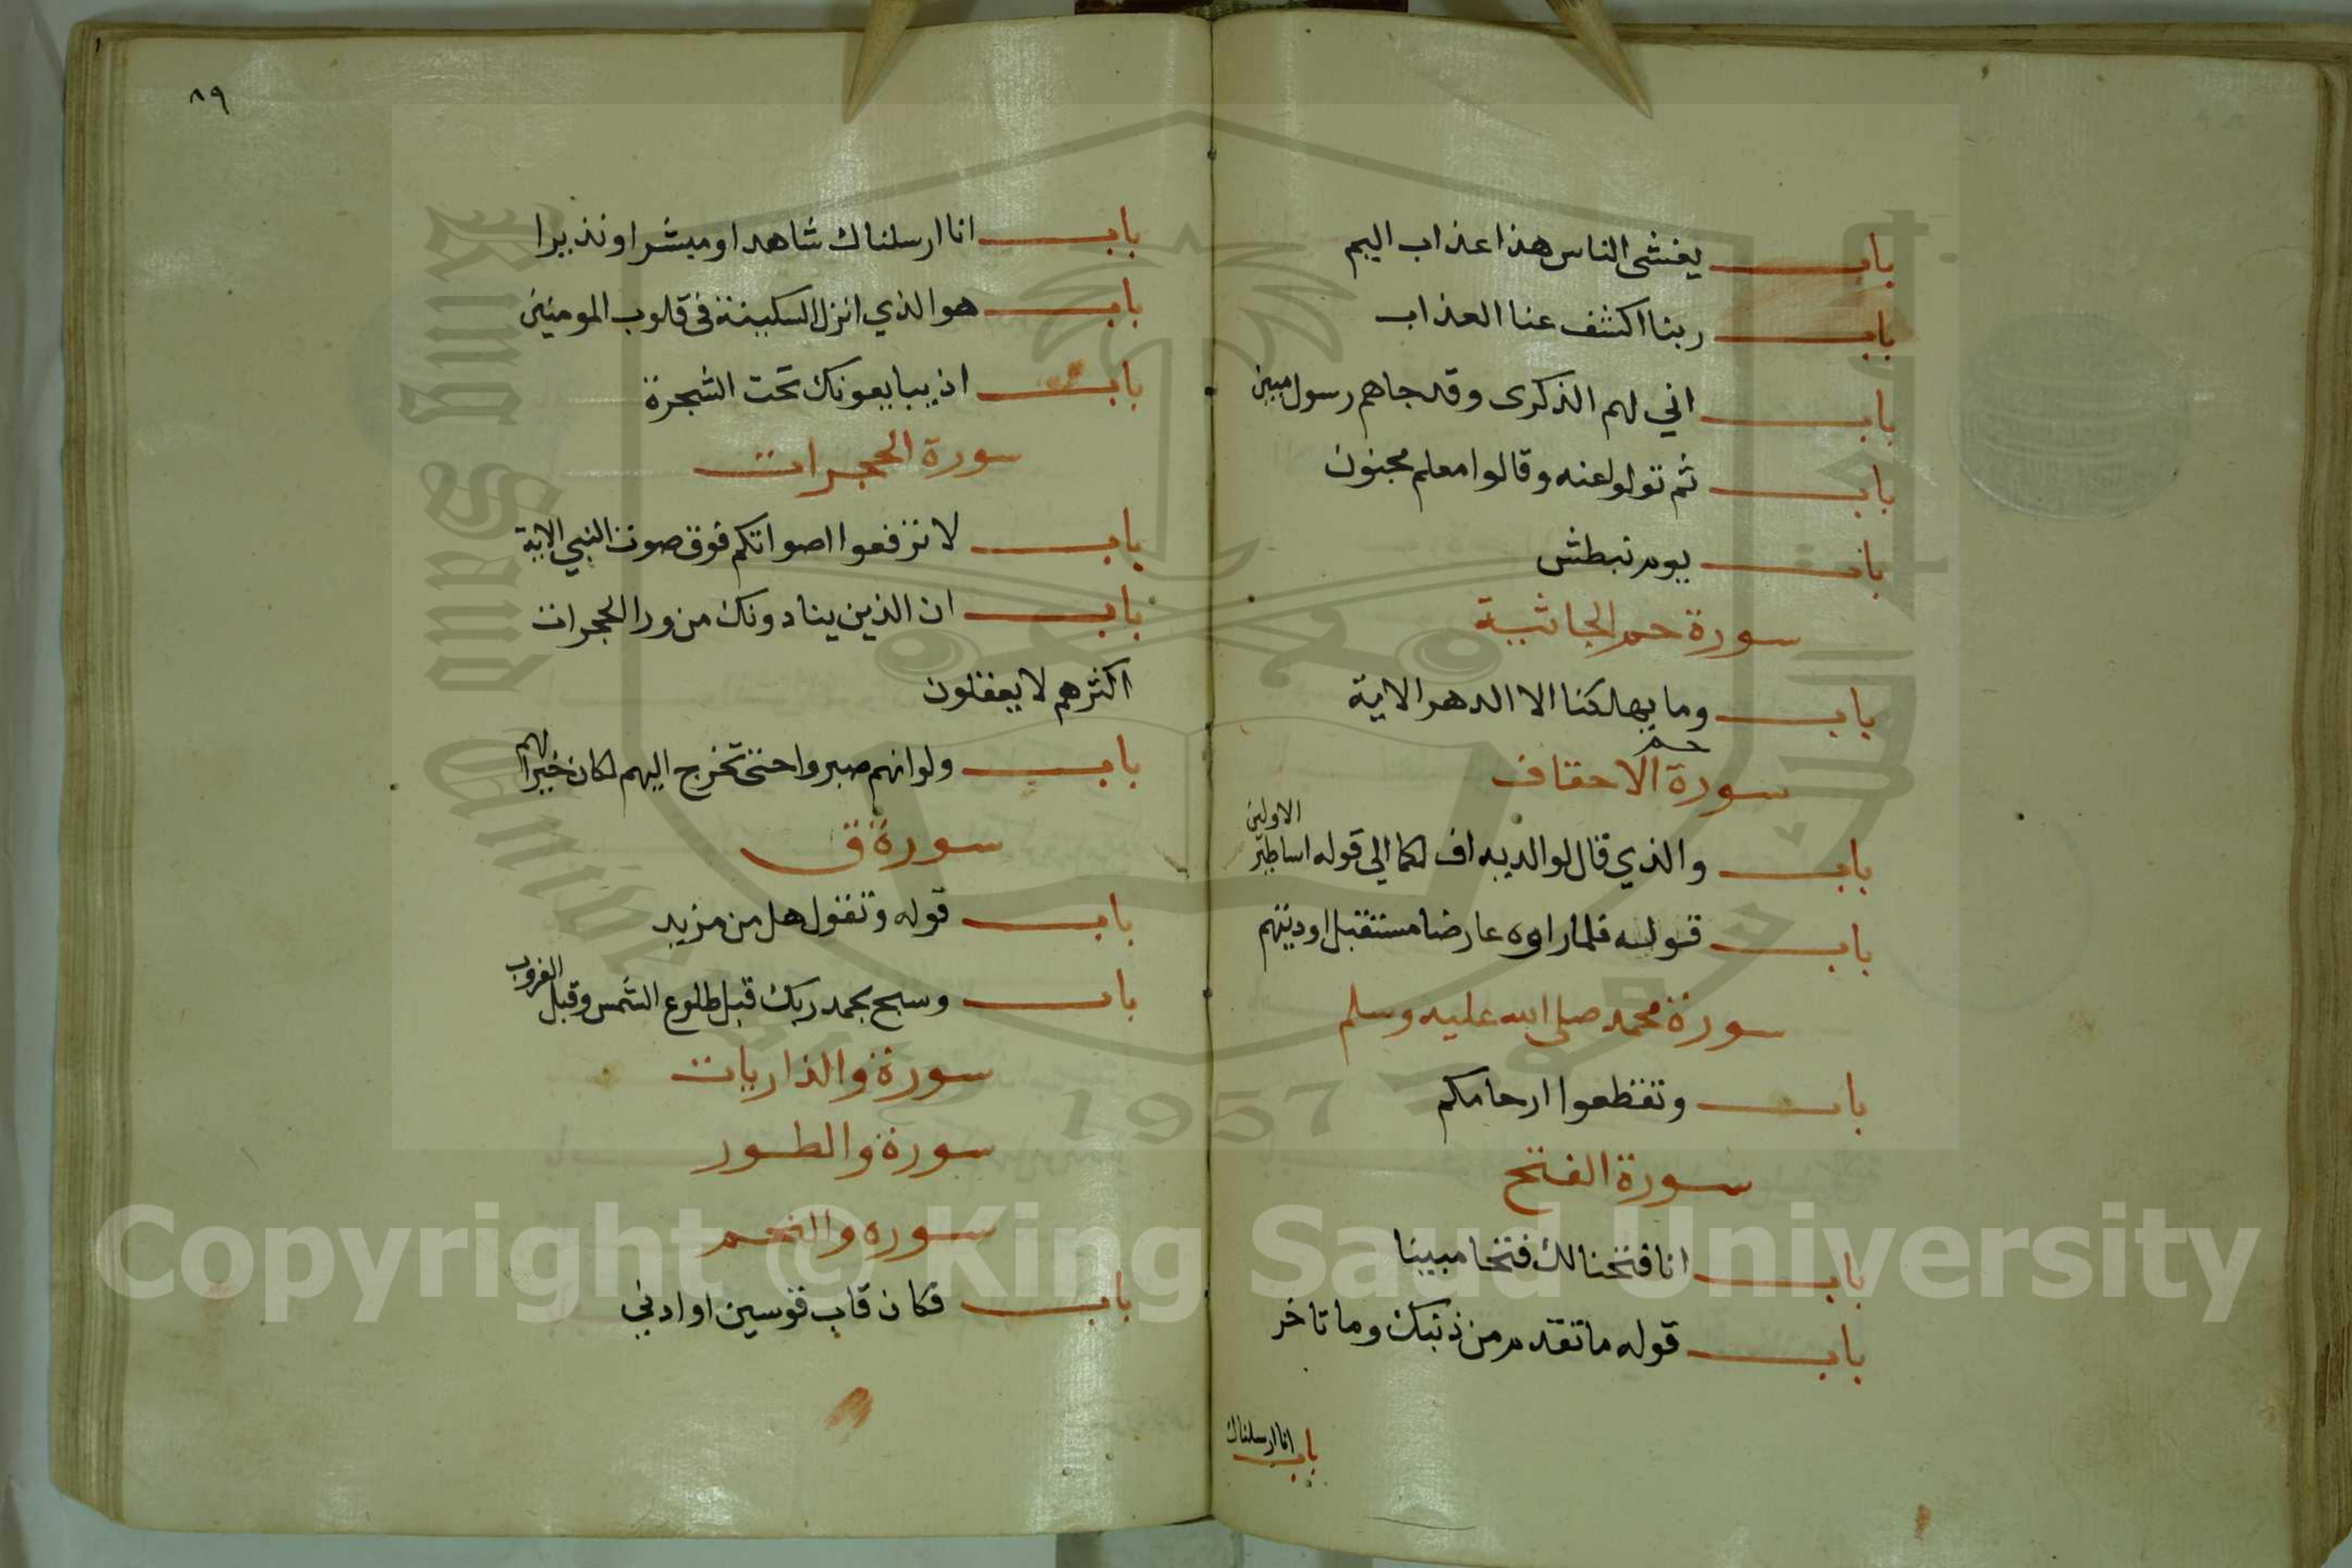 باب يغشى الناس هذا عذاب اليم
باب ربنا اكشف عنا العذاب
باب اني لهم الذكرى وقد جاهم رسول مبين
باب ثم تولوا عنه وقالوا معلم مجنون
باب يوم نبطش
سورة حم الجاثية
باب وما يهلكنا الا الدهر الاية
سورة حم الاحقاف
باب والذي قال لوالديه اف لكما الي قوله اساطير الاولين
باب قوله فلما راوه عارضا مستقبل اوديتهم
سورة محمد صلى الله عليه وسلم
باب وتقطعوا ارحامكم
سورة الفتح
باب انا فتحنا لك فتحا مبينا
باب قوله ما تقدم من ذنبك وما تاخر
باب انا ارسلناك
٨٩
باب انا ارسلناك شاهدا ومبشرا ونذيرا
باب هو الذي انزل السكينة في قلوب المومنين
باب اذ يبايعونك تحت الشجرة
سورة الحجرات
باب لا ترفعوا اصواتكم فوق صوت النبي الاية
باب ان الذين ينادونك من ورا الحجرات
اكثرهم لا يعقلون
باب ولو انهم صبروا حتى تخرج اليهم لكان خيرا لهم
سورة ق
باب قوله وتقول هل من مزيد
باب وسبح بحمد ربك قبل طلوع الشمس وقبل الغروب
سورة والذاريات
سورة والطور
سوره والنجم
باب فكان قاب قوسين او ادني
King Saud University
1957
Copyright © King Saud University